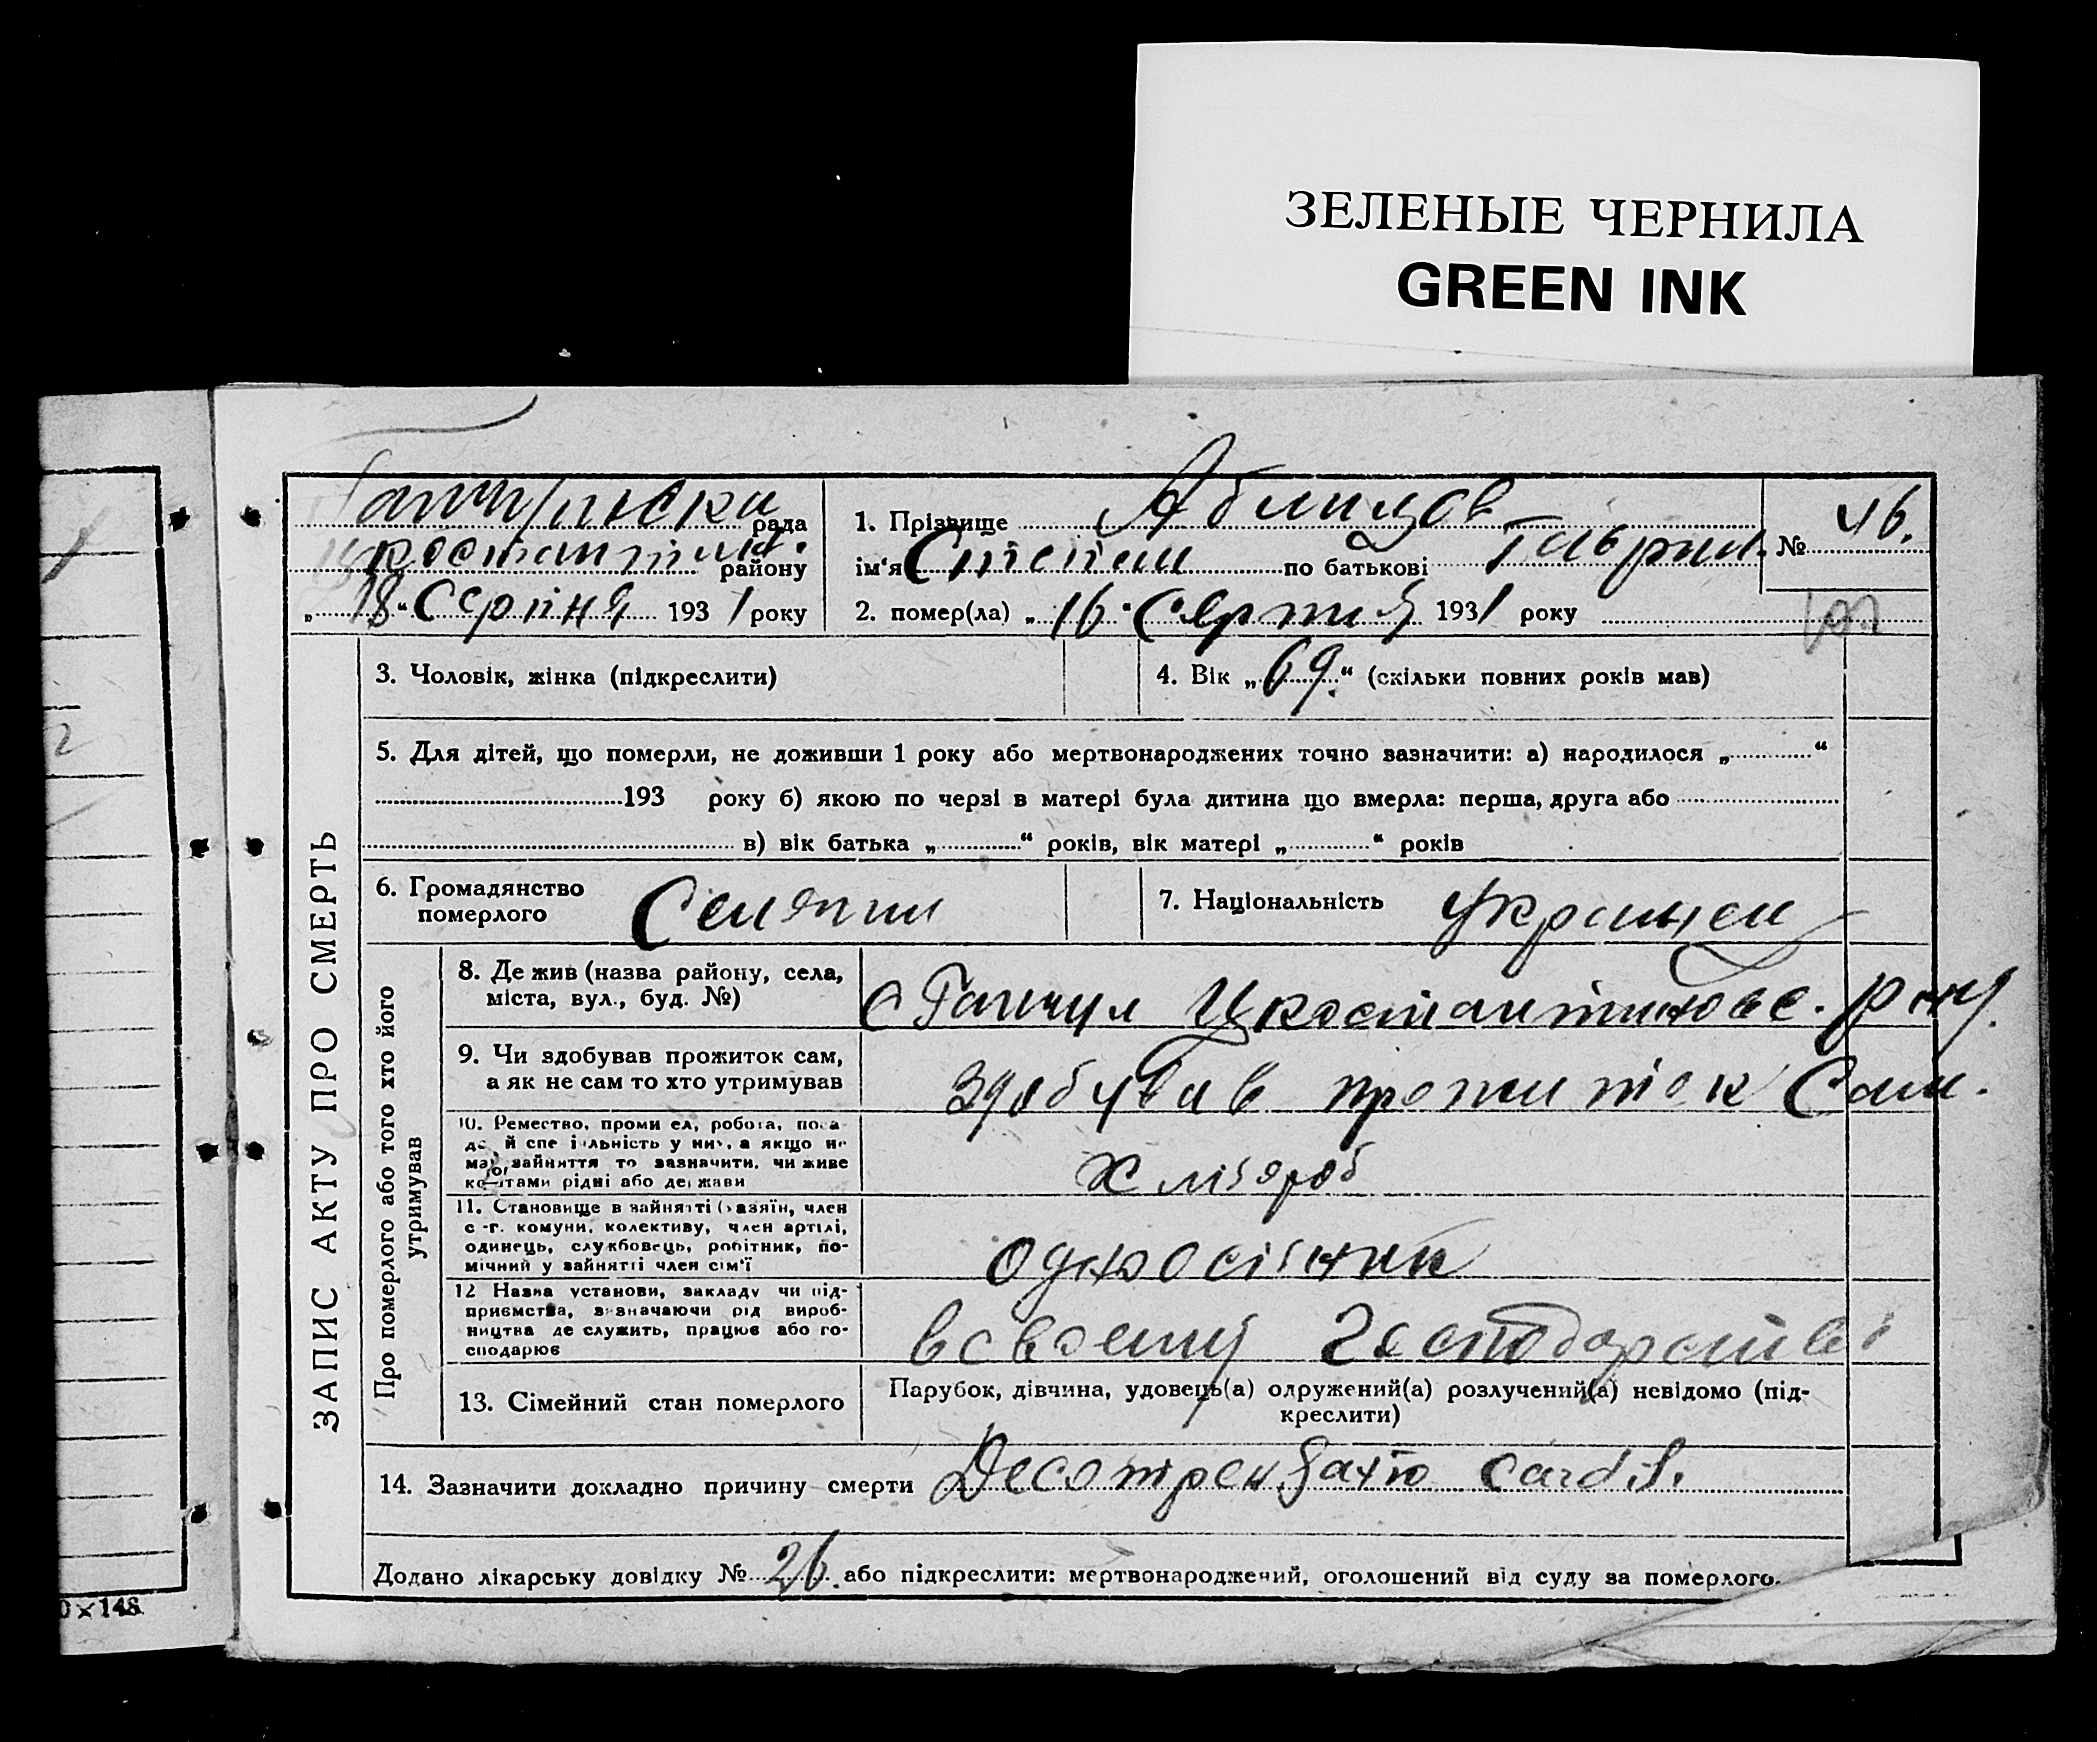 ЗЕЛЕНЫЕ ЧЕРНИЛА
GREEN INK
рада
району
„18“ Серпня 1931 року
1. Прізвище
ім'я Степан по батькові Гаврил.
2. помер(ла) „16“ Серпня 1931 року
№ 46.
ЗАПИС АКТУ ПРО СМЕРТЬ
3. Чоловік, жінка (підкреслити)
4. Вік „69.“ (скільки повних років мав)
5. Для дітей, що померли, не доживши 1 року або мертвонароджених точно зазначити: а) народилося „ “
193 року б) якою по черзі в матері була дитина що вмерла: перша, друга або
в) вік батька „ “ років, вік матері „ “ років
6. Громадянство
померлого
Селянин
7. Національність Українец
Про померлого або того хто його
утримував
8. Де жив (назва району, села,
міста, вул., буд. №)
9. Чи здобував прожиток сам,
а як не сам то хто утримував
здобував прожиток Сам.
10. Ремество, проми ел, робота, поса
да й спе і льність у них, а якщо не
має зайняття то зазначити, чи живе
коштами рідні або держави
хлібороб
11. Становище в зайнятті (хазяїн, член
с-г. комуни, колективу, член артілі,
одинець, службовець, робітник, по-
мічний у зайнятті член сім'ї
одноосібник
12 Назва установи, закладу чи під-
приємства, зазначаючи рід вироб-
ництва де служить, працює або го-
сподарює
в своему господарстві
13. Сімейний стан померлого
Парубок, дівчина, удовець(а) одружений(а) розлучений(а) невідомо (під-
креслити)
14. Зазначити докладно причину смерти
Додано лікарську довідку № 26. або підкреслити: мертвонароджений, оголошений від суду за померлого.
0×148